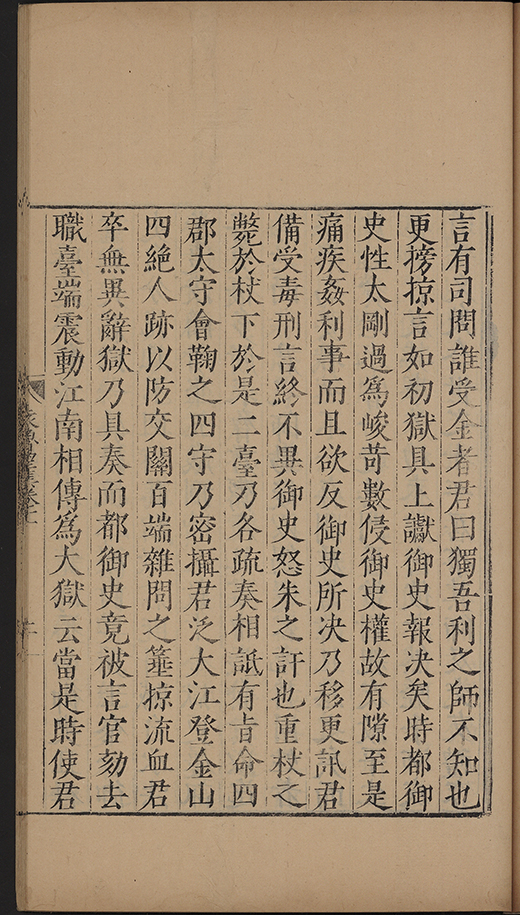 言有司問誰受金者君曰獨吾利之師不知也
更搒掠言如初獄具上讞御史報决矣時都御
史性太剛過爲峻苛數侵御史權故有隙至是
痛疾姦利事而且欲反御史所决乃移更訊君
備受毒刑言終不異御史怒朱之訐也重杖之
斃於杖下於是二臺乃各疏奏相詆有旨命四
郡太守會鞠之四守乃密攝君泛大江登金山
四絶人跡以防交關百端雜問之箠掠流血君
卒無異辭獄乃具奏而都御史竟被言官劾去
職臺端震動江南相傳爲大獄云當是時使君